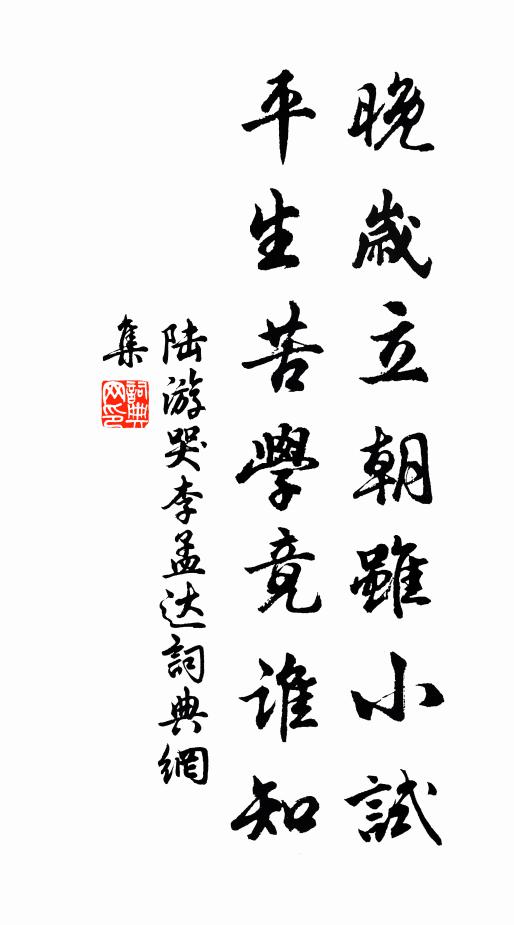 晚歲立朝雖小試
平生苦學竟誰知
陸游哭李孟达詞典網
集
詞典網印